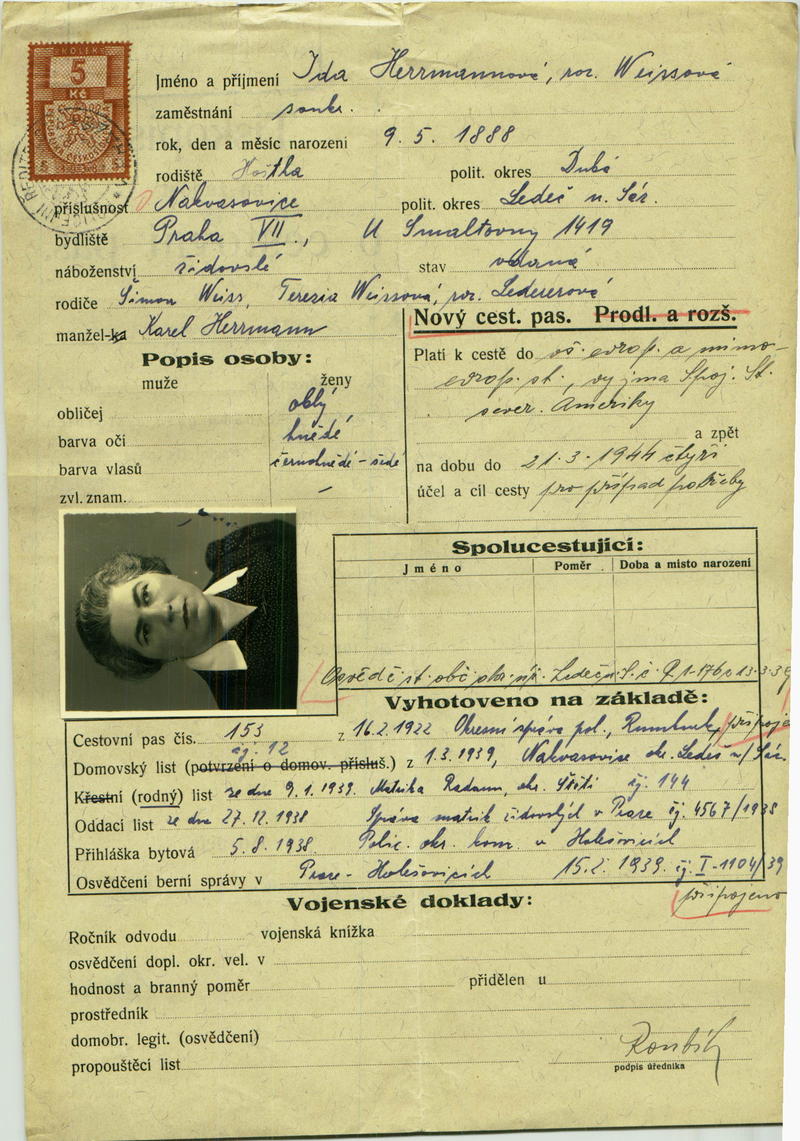 KOLEK
5
Kč
Jméno a příjmení Ida Herrmannová, roz. Weissová
zaměstnání soukr.
rok, den a měsíc narození 9. 5. 1888
rodiště Hoštka polit. okres Dubá
příslušnost Nakvasovice polit. okres Ledeč n. Sáz.
bydliště Praha VII., U Smaltovny 1419
náboženství židovské stav vdaná
rodiče Šimon Weiss, Terezia Weissová, roz. Ledererová
manžel-ka Karel Herrmann
Nový cest. pas. Prodl. a rozš.
Popis osoby:
muže ženy
obličej oblý
barva očí hnědé
barva vlasů černohnědé-šedé
zvl. znam. –
Platí k cestě do vš. evrop. a mimo-
evrop. st., vyjma Spoj. St.
sever. Ameriky
a zpět
na dobu do 21.3.1944 čtyři
účel a cíl cesty pro případ potřeby
Spolucestující:
Jméno Poměr Doba a místo narození
Osvědč. st. obč. 13.3.39
Vyhotoveno na základě:
Cestovní pas čís. 153 z 16.2.1922 Okresní správa pol., Rumburk, připoje
Domovský list (potvrzení o domov. přísluš.) čj. 12 z 1.3.1939, Nakvasovice okr. Ledeč n/Sáz.
Křestní (rodný) list ze dne 9.1.1939. Matrika okr. čj. 144
Oddací list ze dne 27.12.1938 Správa matrik židovských v Praze čj. 4567/1938
Přihláška bytová 5.8.1938. Polic. okr. kom. v Holešovicích
Osvědčení berní správy v Praze-Holešovicích 15.2.1939. čj. I-1104/39
připojeno
Vojenské doklady:
Ročník odvodu vojenská knížka
osvědčení dopl. okr. vel. v
hodnost a branný poměr přidělen u
prostředník
domobr. legit. (osvědčení)
propouštěcí list
podpis úředníka